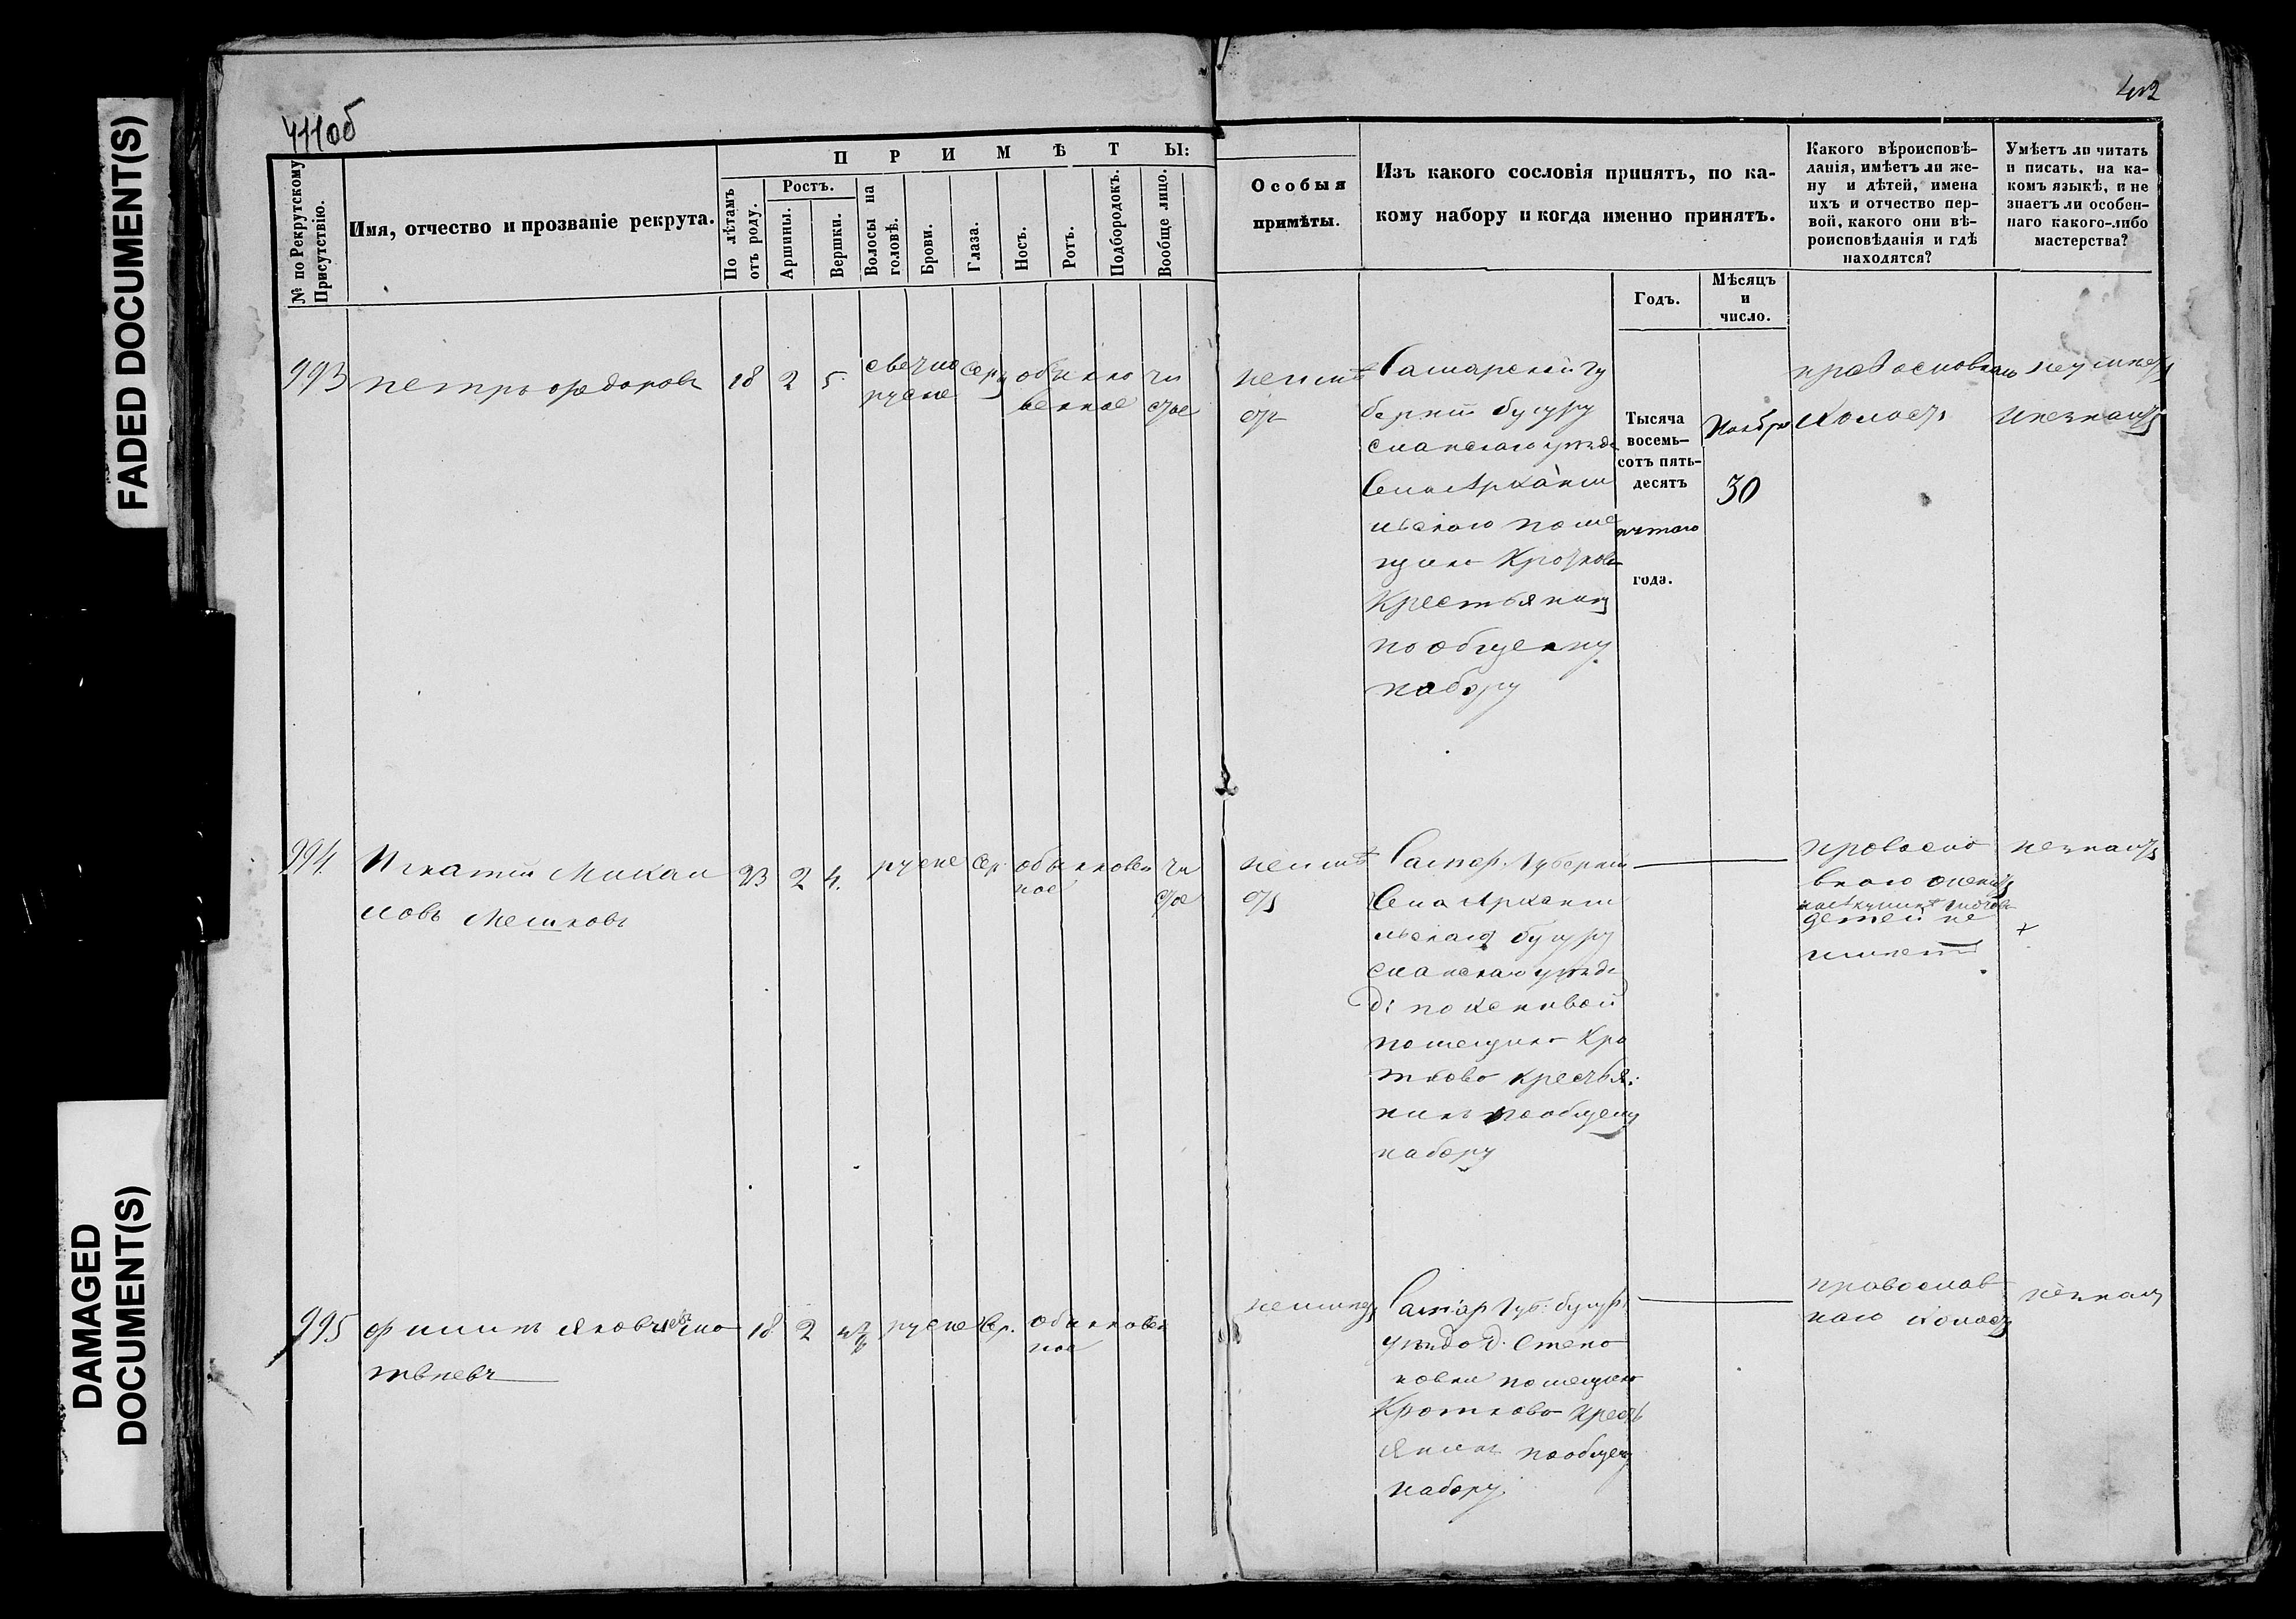 FADED DOCUMENT(S)
DAMAGED
DOCUMENT(S)
411об
412
№ по Рекрутскому
Присутствію.
Имя, отчество и прозваніе рекрута.
ПРИМѢТЫ:
По лѣтамъ
отъ роду.
Ростъ.
Аршины.
Вершки.
Волосы на
головѣ.
Брови.
Глаза.
Носъ.
Ротъ.
Подбородокъ.
Вообще лицо.
Особыя
примѣты.
Изъ какого сословія принятъ, по ка-
кому набору и когда именно принятъ.
Годъ.
Мѣсяцъ
и
число.
Какого вѣроисповѣ-
данія, имѣетъ ли же-
ну и дѣтей, имена
ихъ и отчество пер-
вой, какого они вѣ-
роисповѣданія и гдѣ
находятся?
Умѣетъ ли читать
и писать, на ка-
комъ языкѣ, и не
знаетъ ли особен-
наго какого-либо
мастерства?
993
петръ федоровъ
18
2
5
свечло
русые
серы
обыкно
венное
чи
стое
неимѣ
Самарской гу
берніи бугуру
сланскаго уезда
Села Арханге
льскаго поме
щика Кроткова
Крестьянинъ
по общему
набору
Тысяча
восемь-
сотъ пять-
десятъ
пятаго
года.
Ноября
30
холостъ
неумѣетъ
994.
Игнатій Михаи
ловъ Мешковъ
23
2
4.
русые
сер
обыкновен
ное
чи
стое
неимѣ
Самар. Губерніи
Села Арханге
льскаго бугуру
сланскаго уезда
помещика Кро
ткова крестья:
нинъ пообщему
набору
православ
наго женатъ
детей не
имеетъ
незнаетъ
995
филипъ яковлевъ
18
2
русые
сер.
обыкновен
ное
неимеет
Самар. Губ: бугур
уезда д. Степа
новки помещика
Кроткова кресть
янинъ пообщему
набору
православ
наго холостъ
незнаетъ